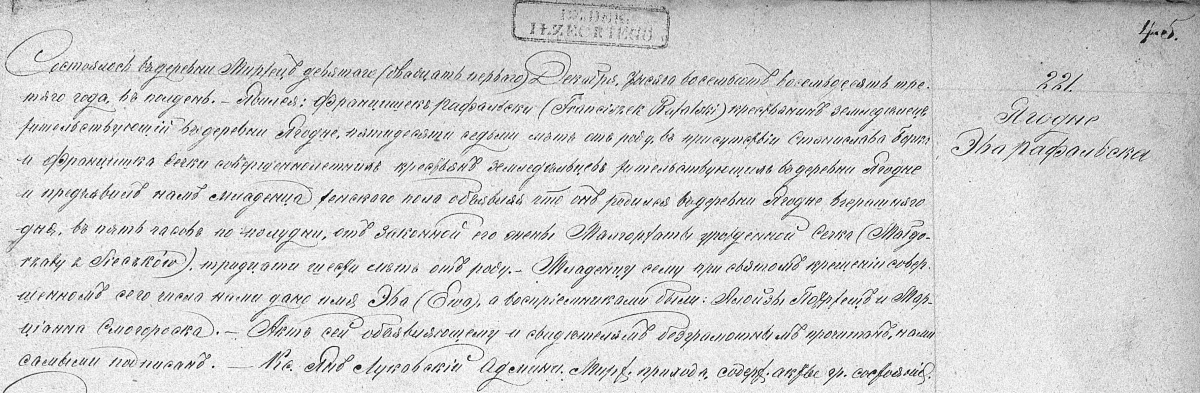 4об.
221.
Ягодне
Эва Рафальска
Состоялось въ деревни Миржецъ девятаго (двадцать перваго) Декабря, тысяча восемьсотъ восемьдесятъ тре-
тяго года, въ полдень. — Явился: Францишекъ Рафальски (Franciszek Rafalski) крестьянинъ земледелецъ
жительствующій въ деревни Ягодне, пятидесяти седьми летъ отъ роду, въ присутствіи Станислава
и Францишка Сечки совершеннолетнихъ крестьянъ земледельцевъ жительствующихъ въ деревни Ягодне
и предъявилъ намъ младенца женского пола объявляя что онъ родился въ деревни Ягодне вчерашняго
дня, въ пять часовъ по полудни, отъ законной его жены Малгоржаты урожденной Сечка (Małgo-
rzaty z Sieczków), тридцати шести летъ отъ роду. — Младенцу сему при святомъ крещеніи совер-
шенномъ сего числа нами дано имя Эва (Ewa), а воспріемниками были: Алойзы и Мар-
ціанна Смогорска. — Актъ сей объявляющему и свидетелямъ безграмотнымъ прочитанъ, нами
самыми подписанъ. — Кс. Янъ Луковскій Админ. Мирж. прихода, содерж. акты гр. состоянія.